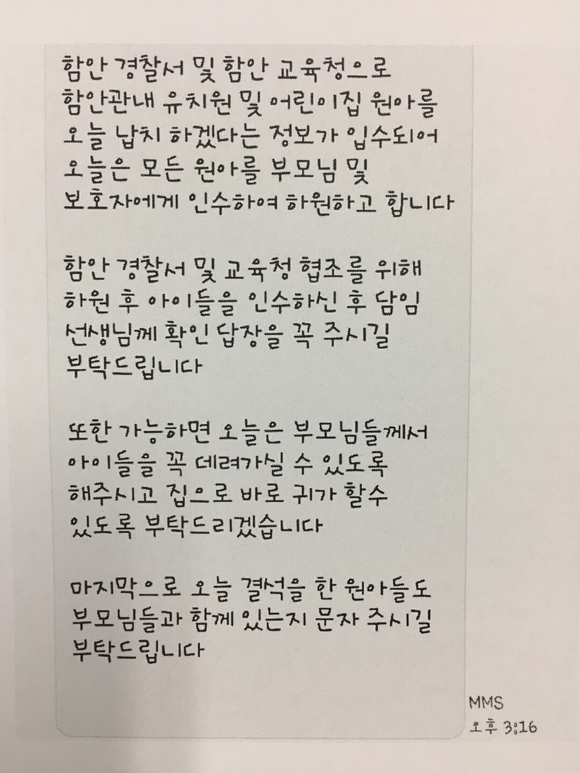 함안 경찰서 및 함안 교육청으로
함안관내 유치원 및 어린이집 원아를
오늘 납치 하겠다는 정보가 입수되어
오늘은 모든 원아를 부모님 및
보호자에게 인수하여 하원하고 합니다
함안 경찰서 및 교육청 협조를 위해
하원 후 아이들을 인수하신 후 담임
선생님께 확인 답장을 꼭 주시길
부탁드립니다
또한 가능하면 오늘은 부모님들께서
아이들을 꼭 데려가실 수 있도록
해주시고 집으로 바로 귀가 할수
있도록 부탁드리겠습니다
마지막으로 오늘 결석을 한 원아들도
부모님들과 함께 있는지 문자 주시길
부탁드립니다
MMS
오후 3:16